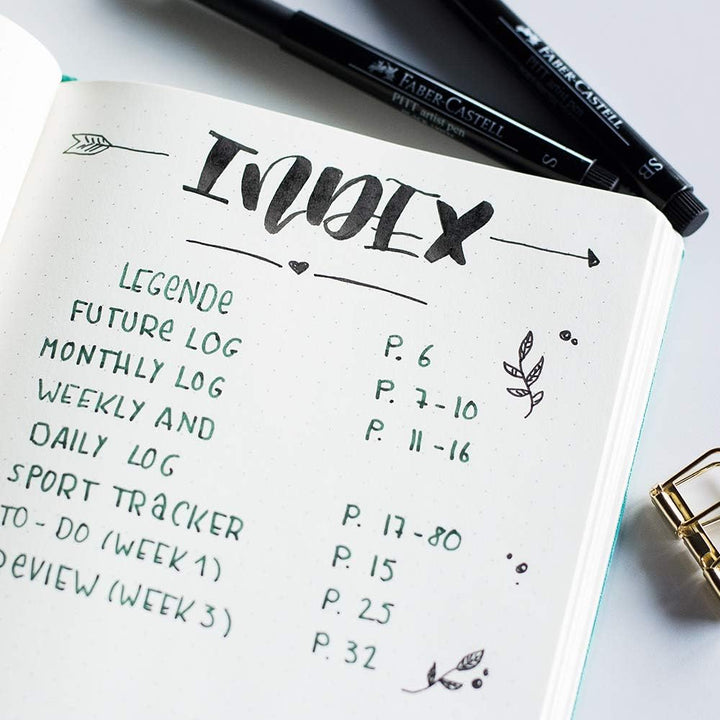 FABER-CASTELL
PITT artist pen S
FABER-CASTELL
PITT artist pen SB
INDEX
LEGENDE P. 6
FUTURE LOG P. 7-10
MONTHLY LOG P. 11-16
WEEKLY AND
DAILY LOG P. 17-80
SPORT TRACKER P. 15
TO-DO (WEEK 1) P. 25
REVIEW (WEEK 3) P. 32